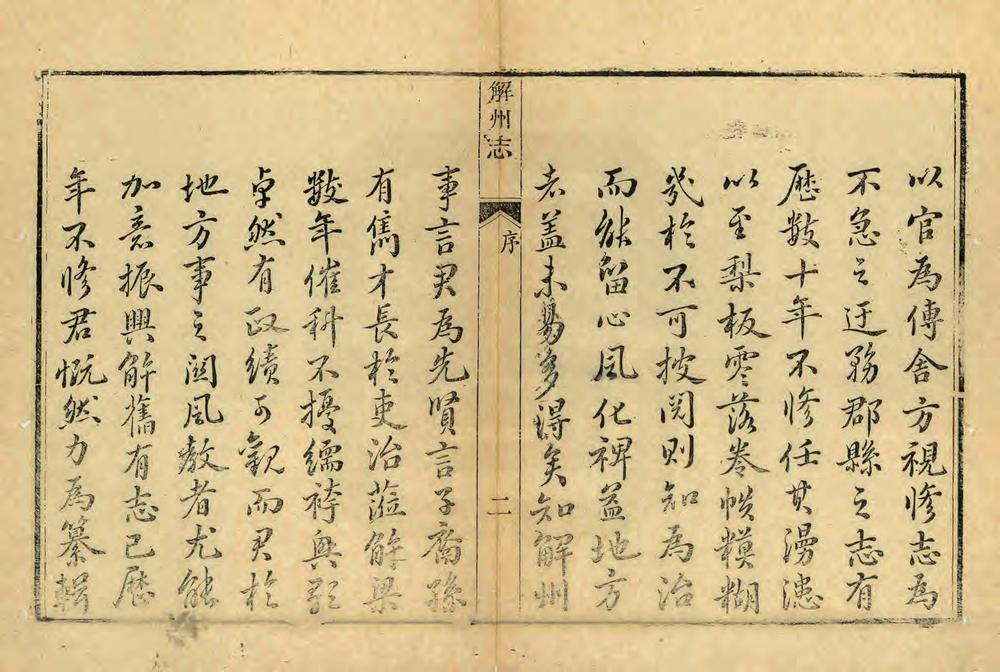 以官為傳舍方視修志為
不急之迂務郡縣之志有
歷數十年不修任其漫漶
以至梨板零落卷帙糢糊
幾於不可披閱則知為治
而能留心風化裨益地方
者蓋未易多得矣知解州
解州志
序
二
事言君為先賢言子裔孫
有雋才長於吏治蒞解梁
數年催科不擾繻袴興歌
卓然有政績可觀而君於
地方事之関風教者尤能
加意振興解舊有志已歷
年不修君慨然力為纂輯